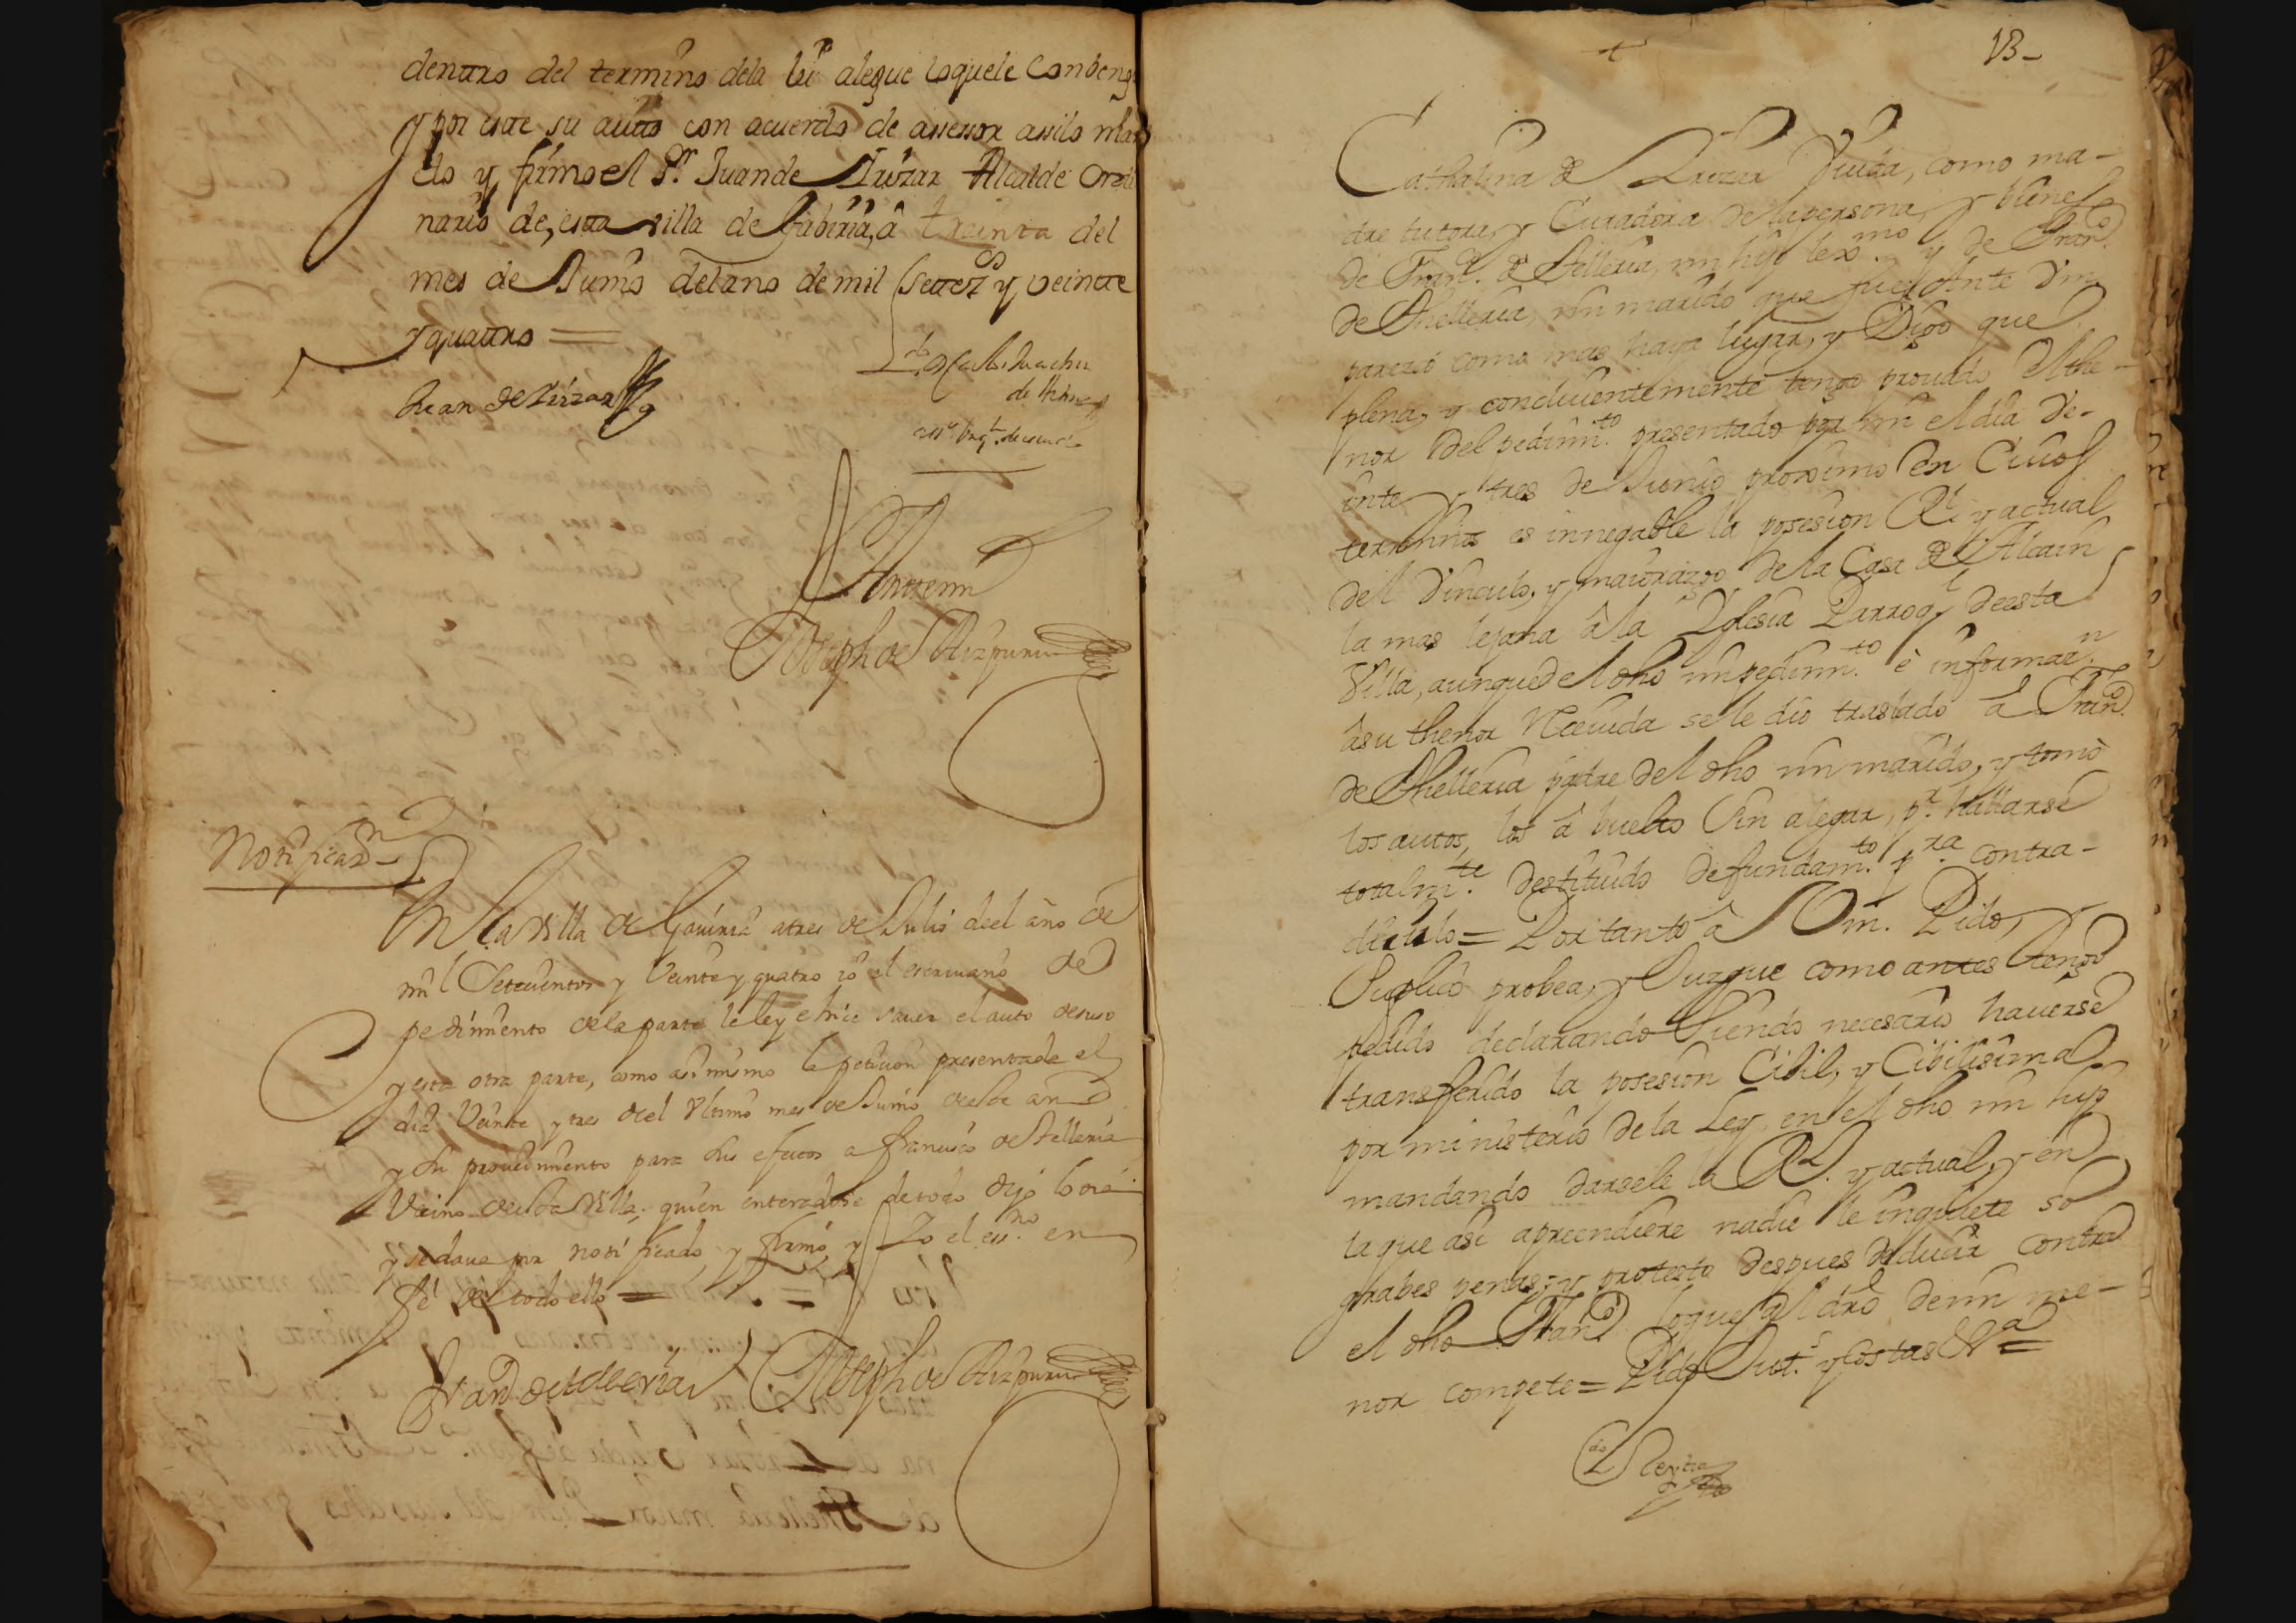 dentro del termino dela lei alegue loquele Conbenga
y por este su auto con acuerdo de assessor assilo man
do y firmo el S.r Juan de Irizar Alcalde Ordi
nario de, esta villa de Gabiria, â treinta del
mes de Junio del ano de mil Settez.os y veinte
y quattro =
Juan de Yrizar
Antemi
Joseph de Aizpuru
Notificaz.n
En la Villa de Gaviria a tres de Julio de el año de
mil Setecientos y Veinte y quatro yo el escrivano de
pedimiento de la parte le ley e hice saver el auto desuso
y esta otra parte, como asimismo la peticion presentada el
dia Veinte y tres de el Ultimo mes de Junio de este año
y su proveimiento para sus efectos a francisco de Telleria
Vecino de esta Villa; quien enterandose de todo dijo lo oia
y se dava por notificado, y firmó y Yo el ess.no en
fé de todo ello =
Fran.co de telleria Joseph de Aizpuru
13-
Cathalina de Irizar Viuda, como ma-
dre tutora, y Curadora de la persona, y bienes
de Fran.co de Telleria, mi hijo lex.mo y de Fran.co
de Thelleria, mi marido que fue, Ante Vm
parezco como mas haya lugar, y Digo que
plena, y concluientemente tengo provado el the-
nor del pedim.to presentado por mi el dia Ve-
inte y tres de Junio proximo en Cuios
terminos es innegable la posesion R.l y actual
del Vinculo, y maiorazgo de la Casa de Alcain
la mas lejana â la Yglesia Parroq.l de esta
Villa, aunque del dho mi pedim.to è informaz.n
âsu thenor Recivida se le dio traslado â Fran.co
de Thelleria padre del dho mi marido, y tomò
los autos, los â buelto Sin alegar, p.r hallarse
totalm.te destituido de fundam.to p.ra contra-
decirlo = Por tanto â Vm. Pido, y
Suplico probea, y Juzgue como antes tengo
pedido declarando Siendo necesario haverse
transferido la posesion Cibil, y Cibilisima
por ministerio de la Ley, en el dho mi hijo
mandando darsele la R.l y actual, y en
la que asi apreendiere nadie le inquiete so
grabes penas, y protesto despues deducir contra
el dho Fran.co loque al dro de mi me-
nor compete = Pido Just.a y Costas V.a =